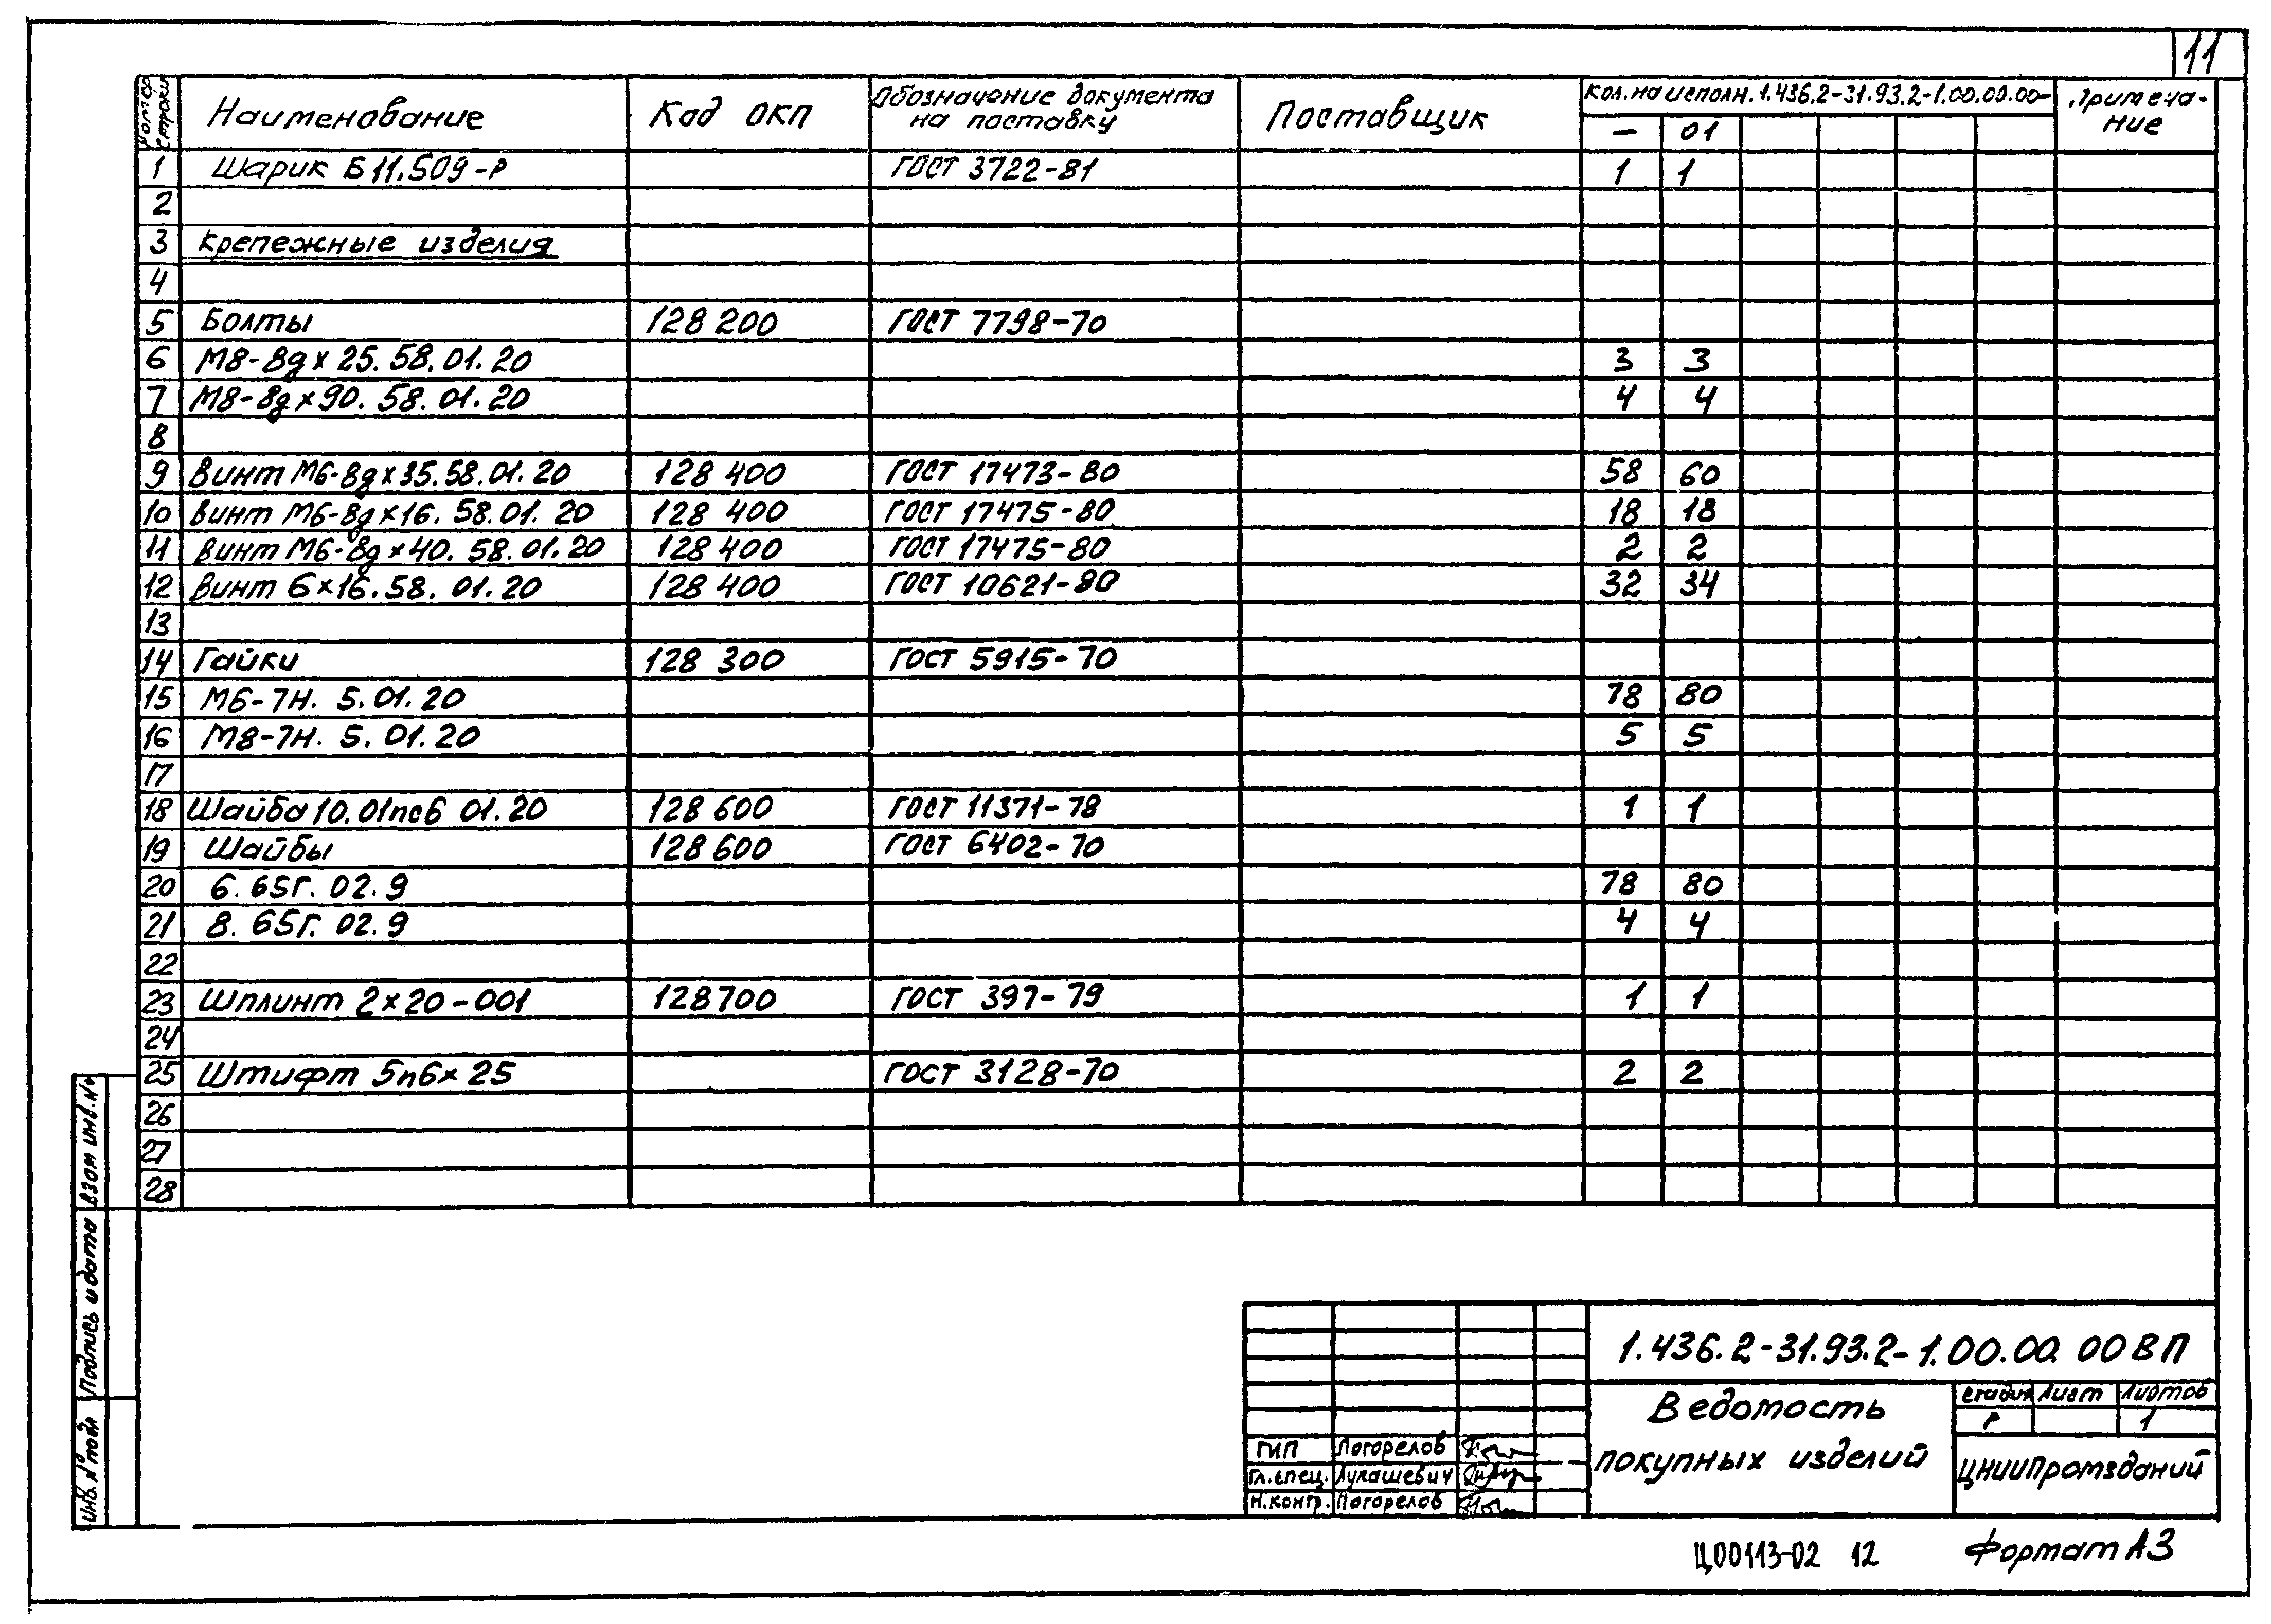 11
Номер строки | Наименование | Код ОКП | Обозначение документа на поставку | Поставщик | Кол. на исполн. 1.436.2-31.93.2-1.00.00.00- | Примечание
— | 01
1 Шарик Б11.509-Р ГОСТ 3722-81 1 1
2
3 Крепежные изделия
4
5 Болты 128 200 ГОСТ 7798-70
6 М8-8g×25.58.01.20 3 3
7 М8-8g×90.58.01.20 4 4
8
9 Винт М6-8g×35.58.01.20 128 400 ГОСТ 17473-80 58 60
10 Винт М6-8g×16.58.01.20 128 400 ГОСТ 17475-80 18 18
11 Винт М6-8g×40.58.01.20 128 400 ГОСТ 17475-80 2 2
12 Винт 6×16.58.01.20 128 400 ГОСТ 10621-80 32 34
13
14 Гайки 128 300 ГОСТ 5915-70
15 М6-7Н.5.01.20 78 80
16 М8-7Н.5.01.20 5 5
17
18 Шайба 10.01пс6 01.20 128 600 ГОСТ 11371-78 1 1
19 Шайбы 128 600 ГОСТ 6402-70
20 6.65Г.02.9 78 80
21 8.65Г.02.9 4 4
22
23 Шплинт 2×20-001 128700 ГОСТ 397-79 1 1
24
25 Штифт 5п6×25 ГОСТ 3128-70 2 2
26
27
28
Взам инв. №
Подпись и дата
Инв. № подл
1.436.2-31.93.2-1.00.00.00 ВП
Ведомость
покупных изделий
Стадия Лист Листов
Р 1
ЦНИИПромзданий
ГИП Погорелов
Гл.спец. Лукашевич
Н.контр. Погорелов
Ц00113-02 12
Формат А3